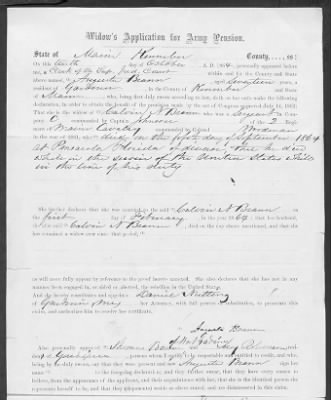 Widow's Application for Army Pension.
State of Maine Kennebec County, ss:
On this tenth day of October A. D. 1864 personally appeared before
me, Clerk of the Sup. Jud. Court within and for the County and State
above named, Augusta Beann aged years, a
resident of Gardiner in Kennebec and State
of Maine who, being first duly sworn according to law, doth on her oath make the following
declaration, in order to obtain the benefit of the provision made by the act of Congress approved July 14, 1862:
That she is the widow of Calvin N Beann who was a Sergeant in Co.
commanded by Captain in the 2 Regt
of Maine Cavalry commanded by Colonel Woodman
who died on the fifth day of September 1864
at Florida of disease that he died
while in the service of the United States and
in the line of his duty
She further declares that she was married to the said Calvin N Beann on
the first day of February in the year 1864; that her husband,
Calvin N Beann, died on the day above mentioned, and that she
has remained a widow ever since that period,
as will more fully appear by reference to the proof hereto annexed. She also declares that she has not in any
manner been engaged in, or aided or abetted, the rebellion in the United States.
And she hereby constitutes and appoints Daniel Nutting
of Gardiner Me. her Attorney, with full power of substitution, to prosecute this
claim, and authorizes him to receive her certificate
Augusta Beann
Also personally appeared and
of Gardiner persons whom I certify to be respectable and entitled to credit, and who,
being by me duly sworn, say that they were present and saw Augusta Beann sign her
name to the foregoing declaration; and they further swear, that they have every reason to
believe, from the appearance of the applicant, and their acquaintance with her, that she is the identical person she
represents herself to be, and that they have no interest in the prosecution of this claim.